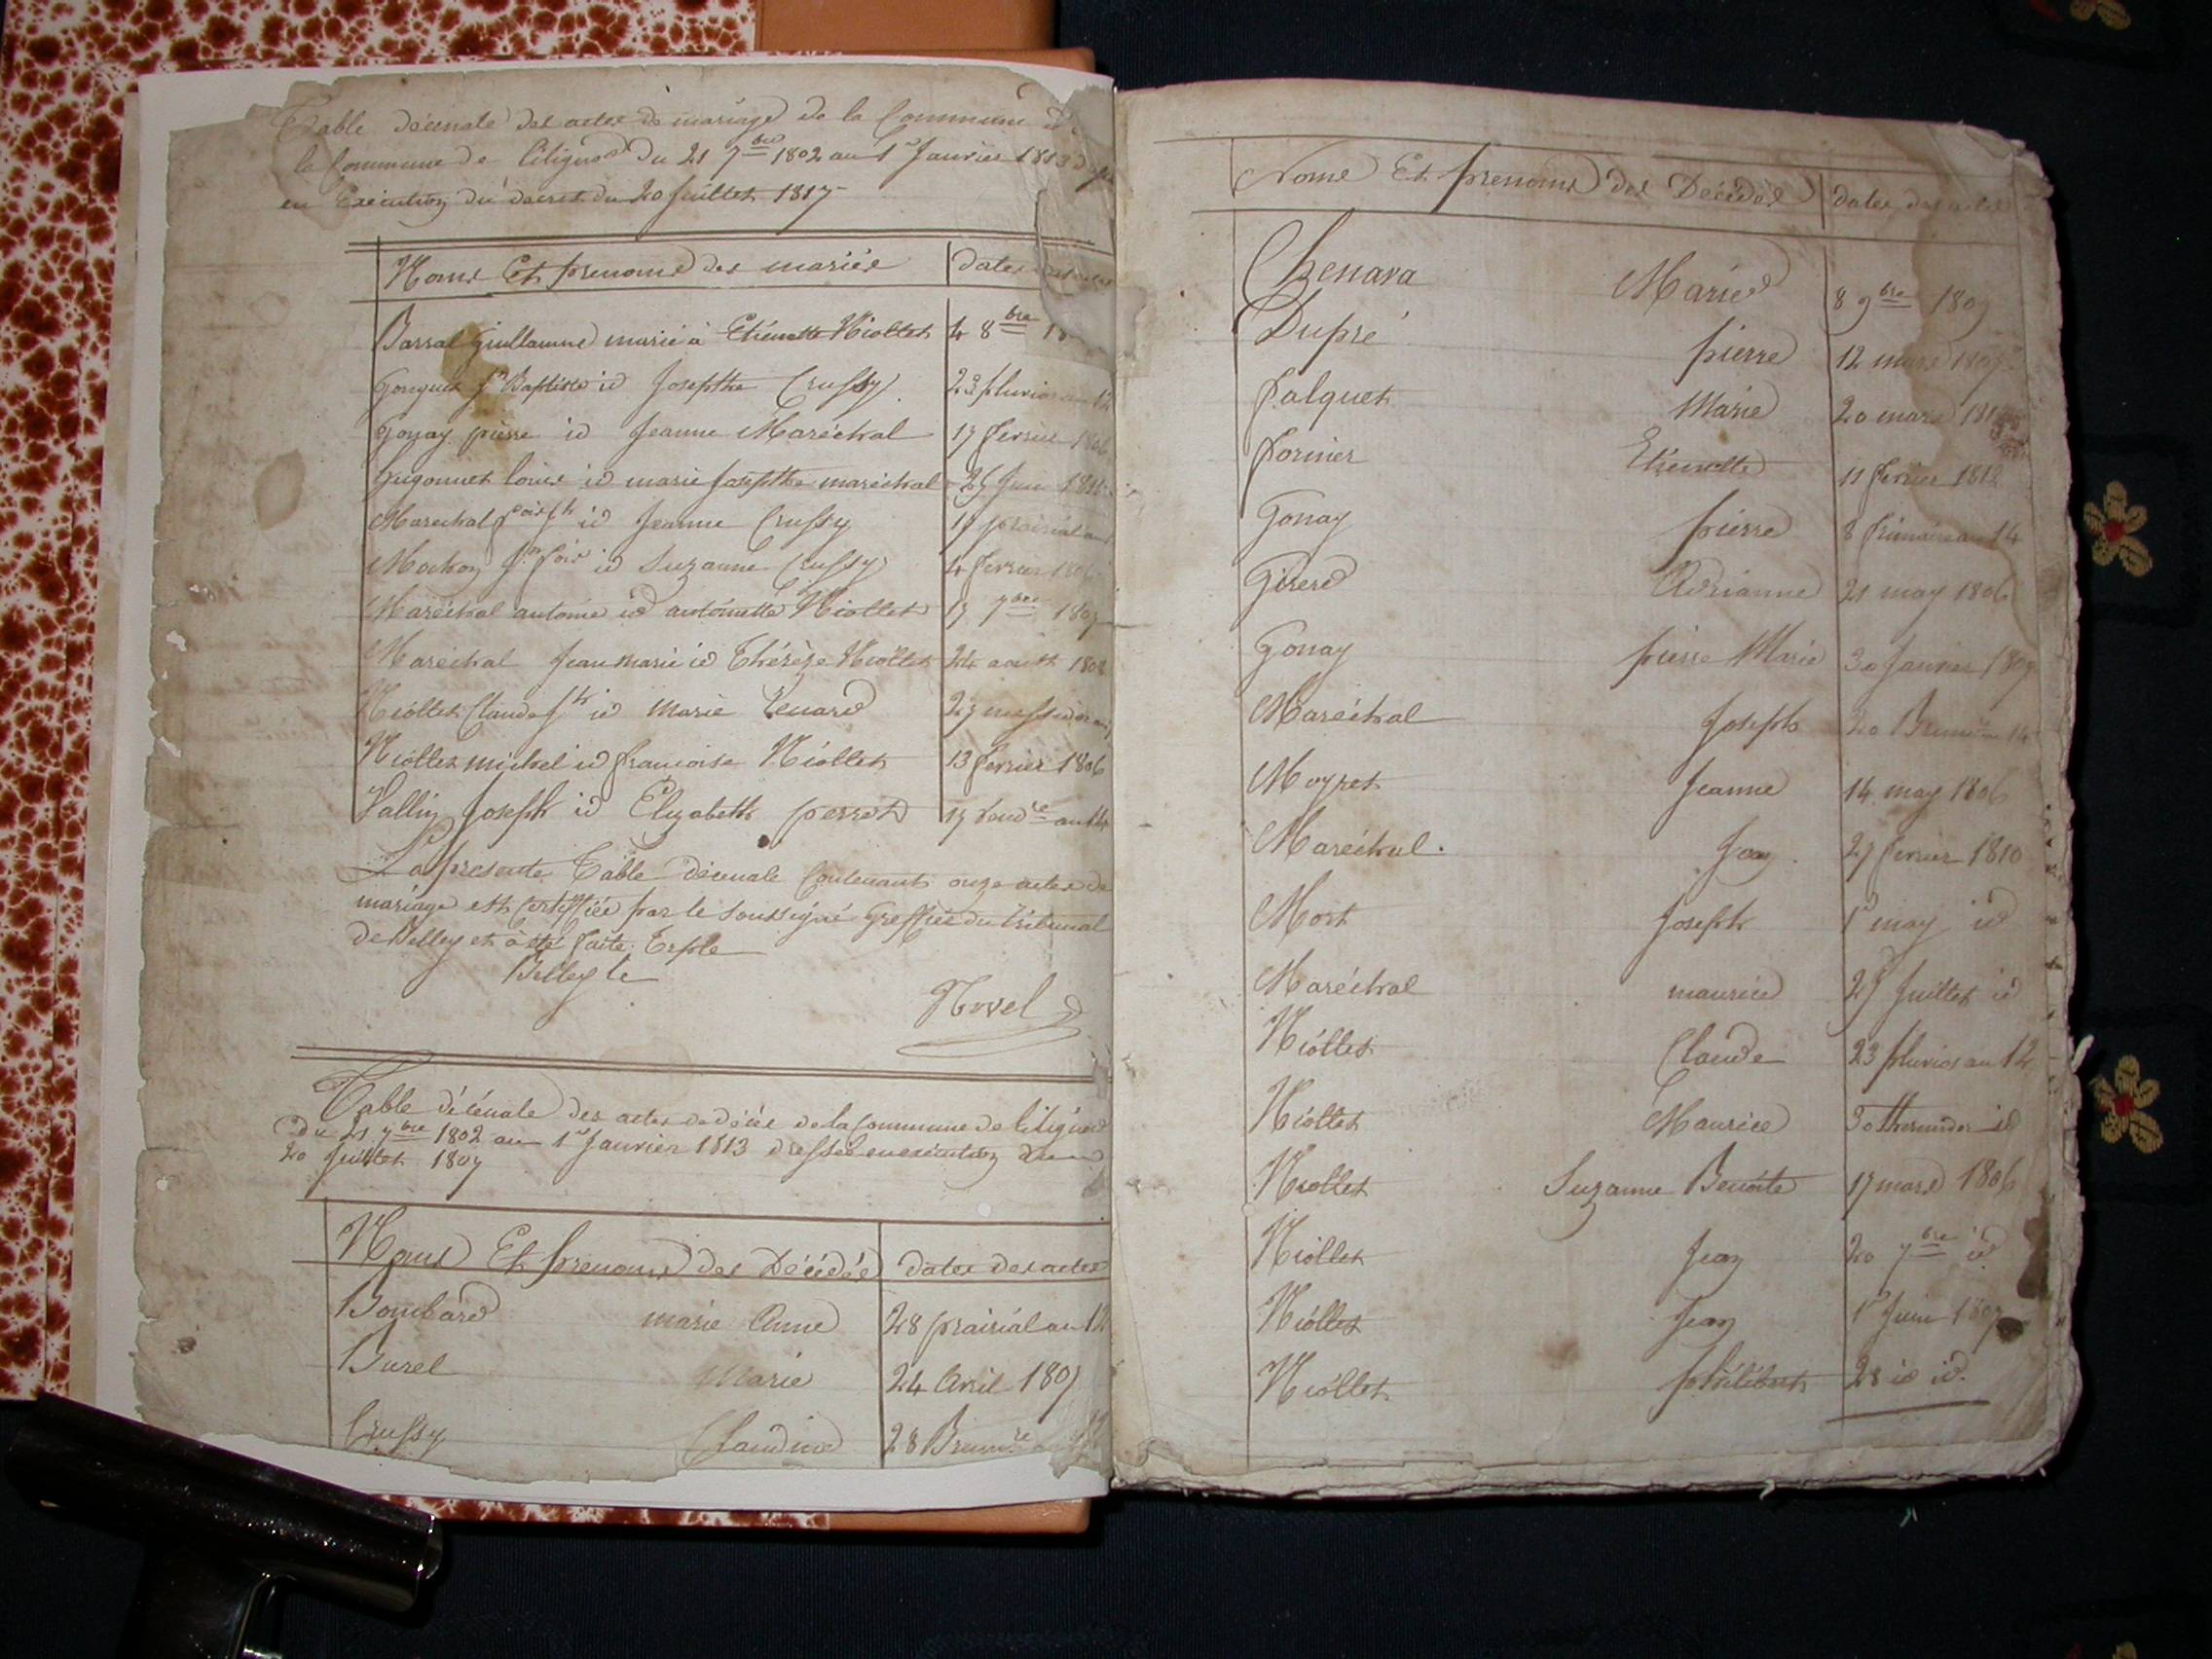 Table décenale des actes de mariage de la Commune
la Commune de Litignes du 21 7bre 1802 au 1er Janvier 1813
en Execution du decret du 20 Juillet 1807
Noms Et prenoms des mariés dates des actes
Barral Guillaume marié à Etienette Niollet 4 8bre
Gouguet Jn Baptiste id Josephte Crussy 23 pluvios an 12
Gonay pierre id Jeanne Maréchal 17 fevrier 1806
Gugonnet louis id marie Josephte maréchal 25 Juin
Marechal Joseph id Jeanne Crussy 19 prairial an
Jn fois id Suzanne Crussy 4 fevrier 1806
Maréchal antoine id antoinette Niollet 17 7bre 1807
Maréchal Jean marie id Thérèze Niollet 24 aoust 1808
Niollet Claude Jh id Marie Renard 27 messidor an
Niollet michel id francoise Niollet 13 fevrier 1806
Vallin Joseph id Elizabeth perret 17 Vendre an 14
La presente Table décenale Contenant onze actes de
mariage est Certiffiée par le soussigné Greffier du Tribunal
de Belley et à été faite Triple
Belley le
Novel
Table décénale des actes de décès de la Commune de Litignes
du 21 7bre 1802 au 1er Janvier 1813 dressée en execution du
20 Juillet 1807
Noms Et prenoms des Décédés dates des actes
Bombard marie Anne 28 prairial an 12
Burel Marie 24 Avril 1807
Crussy Claudine 28 Brumre
Noms Et prenoms des Décédés dates des actes
Chenava Marie 8 9bre 1807
Dupré pierre 12 mars 1807
falquet Marie 20 mars
forinier Etienette 11 fevrier 1812
Gonay pierre 8 frimaire an 14
Girerd Adrianne 21 may 1806
Gonay pierre Marie 30 Janvier 1807
Maréchal Joseph 20 Brumre 14
Moyret Jeanne 14 may 1806
Maréchal Jean 27 fevrier 1810
Mort Joseph 1er may id
Maréchal maurice 25 Juillet id
Niollet Claude 23 pluvios an 12
Niollet Maurice 30 thermidor id
Niollet Suzanne Benoite 17 mars 1806
Niollet Jean 20 7bre id
Niollet Jean 1er Juin 1807
Niollet philibert 28 id id